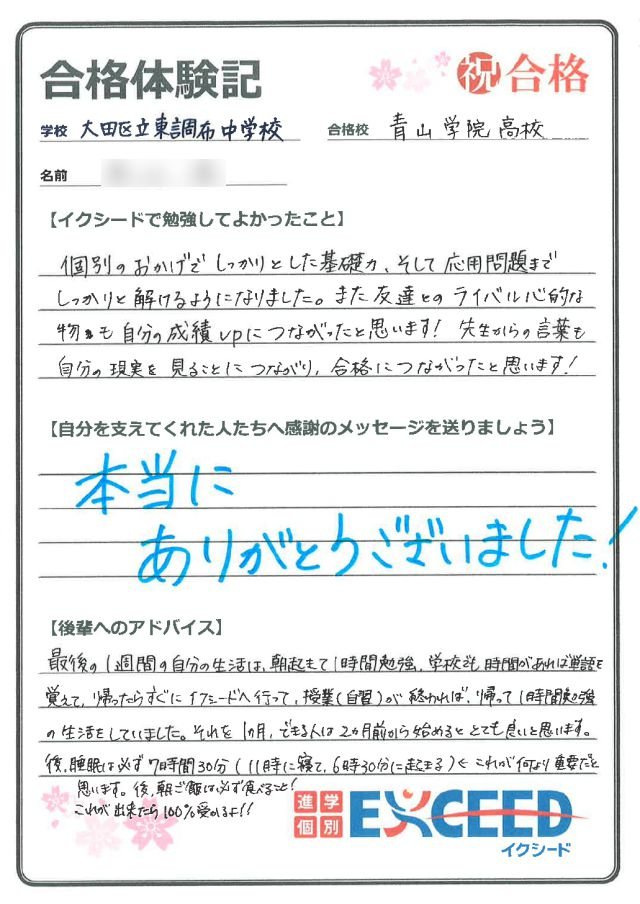 合格体験記
祝 合格
学校 大田区立東調布中学校 合格校 青山学院高校
名前
【イクシードで勉強してよかったこと】
個別のおかげでしっかりとした基礎力、そして応用問題まで
しっかりと解けるようになりました。また友達とのライバル心的な
物も自分の成績upにつながったと思います! 先生からの言葉も
自分の現実を見ることにつながり、合格につながったと思います!
【自分を支えてくれた人たちへ感謝のメッセージを送りましょう】
本当に
ありがとうございました!
【後輩へのアドバイス】
最後の1週間の自分の生活は、朝起きて1時間勉強、学校でも時間があれば単語を
覚えて、帰ったらすぐにイクシードへ行って、授業(自習)が終われば、帰って1時間勉強
の生活をしていました。それを1カ月、できる人は2カ月前から始めるととても良いと思います。
後、睡眠は必ず7時間30分(11時に寝て、6時30分に起きる)←これが何より重要だと
思います。後、朝ご飯は必ず食べること!
これが出来たら100%受かるよ!!
進学
個別
EXCEED
イクシード